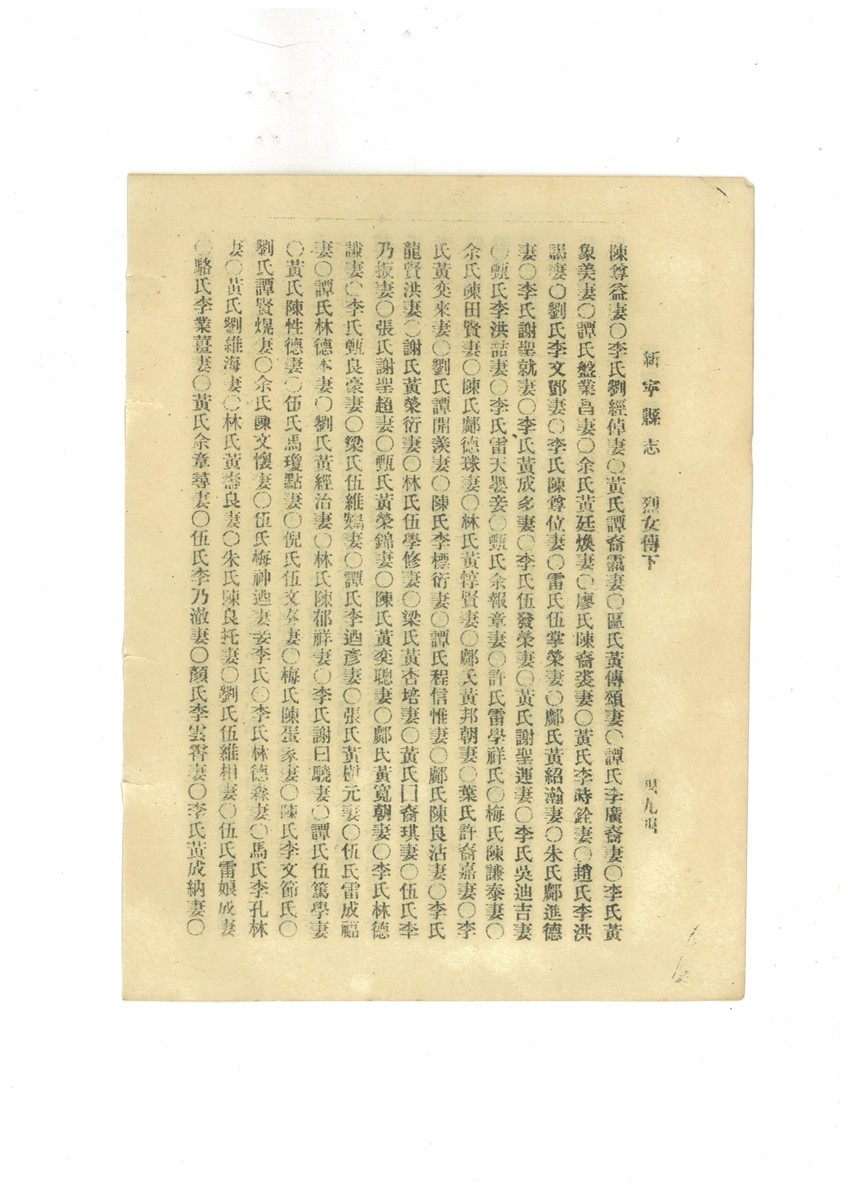 新寧縣志 烈女傳下
陳尊益妻〇李氏劉經倬妻〇黃氏譚裔靄妻〇區氏黃傳頌妻〇譚氏李廣裔妻〇李氏黃
象美妻〇譚氏盤業昌妻〇余氏黃廷煥妻〇廖氏陳裔裘妻〇黃氏李時銓妻〇趙氏李洪
謁妻〇劉氏李文鄧妻〇李氏陳尊位妻〇雷氏伍掌榮妻〇鄺氏黃紹瀚妻〇朱氏鄺進德
妻〇李氏謝聖就妻〇李氏黃成多妻〇李氏伍發榮妻〇黃氏謝聖運妻〇李氏吳迪吉妻
〇甄氏李洪喆妻〇李氏雷天墨妾〇甄氏余報章妻〇許氏雷學祥氏〇梅氏陳謙泰妻〇
余氏陳田賢妻〇陳氏鄺德球妻〇林氏黃惇賢妻〇鄺氏黃邦朝妻〇葉氏許裔嘉妻〇李
氏黃奕來妻〇劉氏譚開羨妻〇陳氏李標衍妻〇譚氏程信惟妻〇鄺氏陳良沾妻〇李氏
龍賢洪妻〇謝氏黃榮衍妻〇林氏伍學修妻〇梁氏黃杏培妻〇黃氏裔琪妻〇伍氏李
乃振妻〇張氏謝聖超妻〇甄氏黃榮錦妻〇陳氏黃奕聰妻〇鄺氏黃寬朝妻〇李氏林德
謙妻〇李氏甄良豪妻〇梁氏伍維鴉妻〇譚氏李迺彥妻〇張氏黃樹元妻〇伍氏雷成福
妻〇譚氏林德本妻〇劉氏黃經治妻〇林氏陳郁祥妻〇李氏謝曰驍妻〇譚氏伍篤學妻
〇黃氏陳性德妻〇伍氏馬瓊點妻〇倪氏伍文妻〇梅氏陳蛋家妻〇陳氏李文節氏〇
劉氏譚賢焜妻〇余氏陳文懷妻〇伍氏梅神迺妻妾李氏〇李氏林德森妻〇馬氏李孔林
妻〇黃氏劉維海妻〇林氏黃壽良妻〇朱氏陳良托妻〇劉氏伍維相妻〇伍氏雷娘成妻
〇駱氏李業薑妻〇黃氏余章尋妻〇伍氏李乃澈妻〇顏氏李雲霄妻〇李氏黃成納妻〇